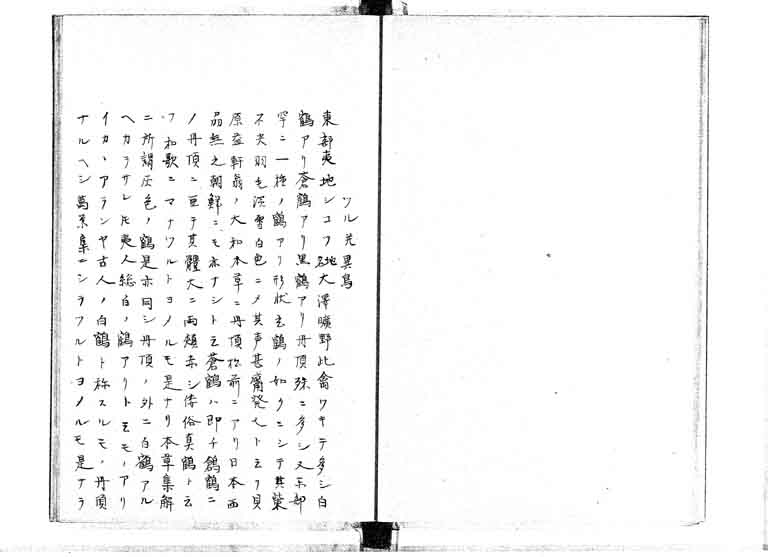 ツル 光異鳥
東部夷地シコツ 地名 大澤曠野此禽ワキテ多シ白
鶴アリ蒼鶴アリ黒鶴アリ丹頂殊ニ多シ又東部
ニ一種ノ鶴アリ形状玄鶴ノ如クニシテ其
羽毛深雪白色ニメ其声甚トモリ貝
原益軒翁ノ大和本草ニ丹頂松前ニアリ日本西
品無之朝鮮ニモ亦ナシト云蒼鶴ハ即チ鶴ニ
ノ丹頂ニ亘テ其體大ニ両頬赤シ倭俗真鶴ト云
フ和歌ニマナツルトヨメルモ是ナリ本草集解
ニ所謂灰色ノ鶴是亦同シ丹頂ノ外ニ白鶴アル
ヘカラサレ𪜈夷人総白ノ鶴アリト云モノアリ
イカヽアランヤ古人ノ白鶴ト称スルモノ丹頂
ナルヘシ萬葉集ニシラツルトヨメルモ是ナラ